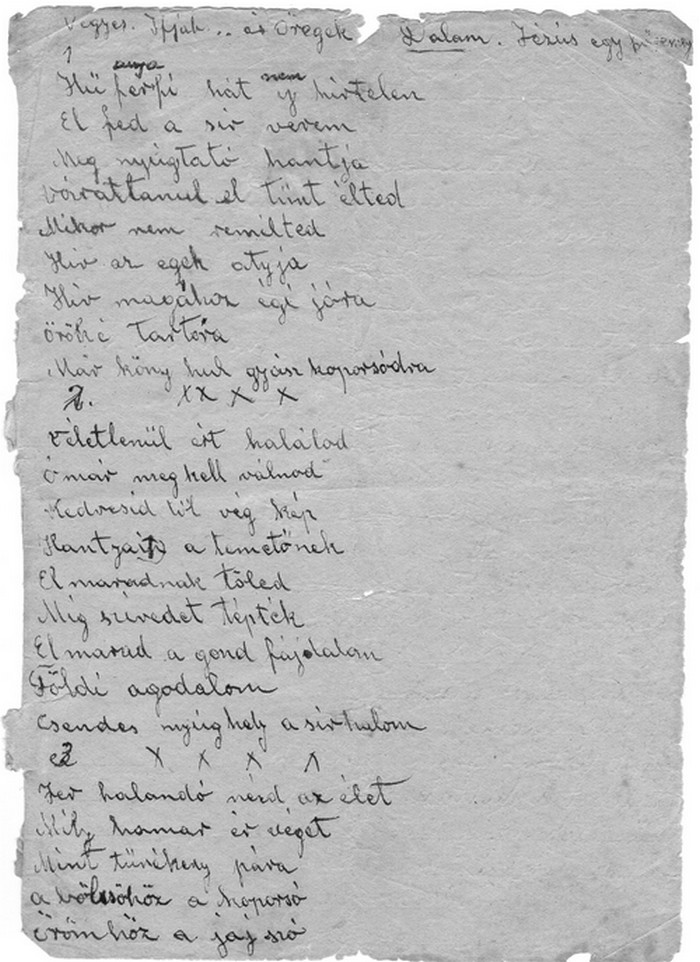 Vegyes. Ifjak... és Öregek Dalam. Jézús egy
1
anya nem
Hű férfi hát ij hirtelen
El fed a sir verem
Meg nyúgtató hantja
várattanul el tünt élted
Mikor nem remilted
Hiv az egek atyja
Hiv magához égi jóra
öröké tartóra
Már köny hul gyász koporsódra
2. x x x x
véletlenül ért halálod
ó már meg kell válnod
Kedvesid től vég kép
Hantjain a temetőnek
El maradnak tőled
Mig szivedet tépték
El marad a gond fájdalom
Földi agodalom
Csendes nyúg hely a sir halom
3 x x x x
Jer halandó nézd az élet
Mily hamar ér véget
Mint tünékeny pára
a bölcsőhöz a koporsó
örömhöz a jáj szó